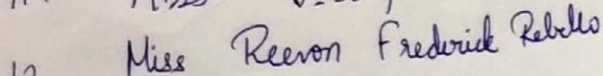 12 Miss Reevon Frederick Rebello